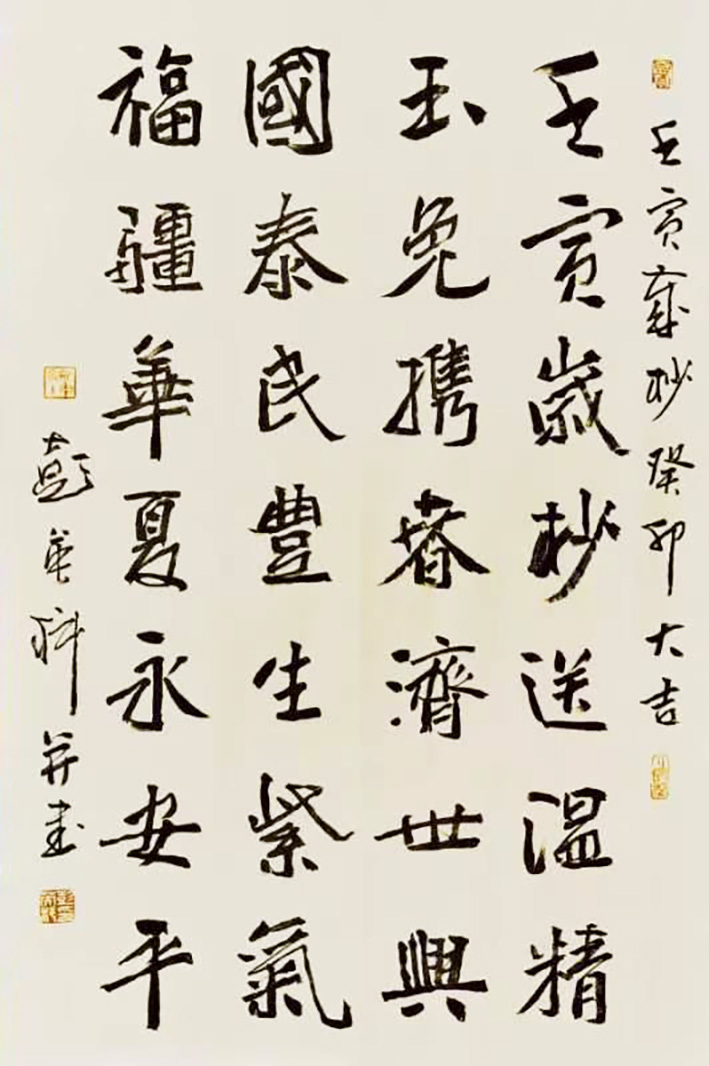 壬寅歲杪癸卯大吉
壬寅歲杪送溫精
玉兔携春濟世興
國泰民豐生紫氣
福疆華夏永安平
彭英科并書